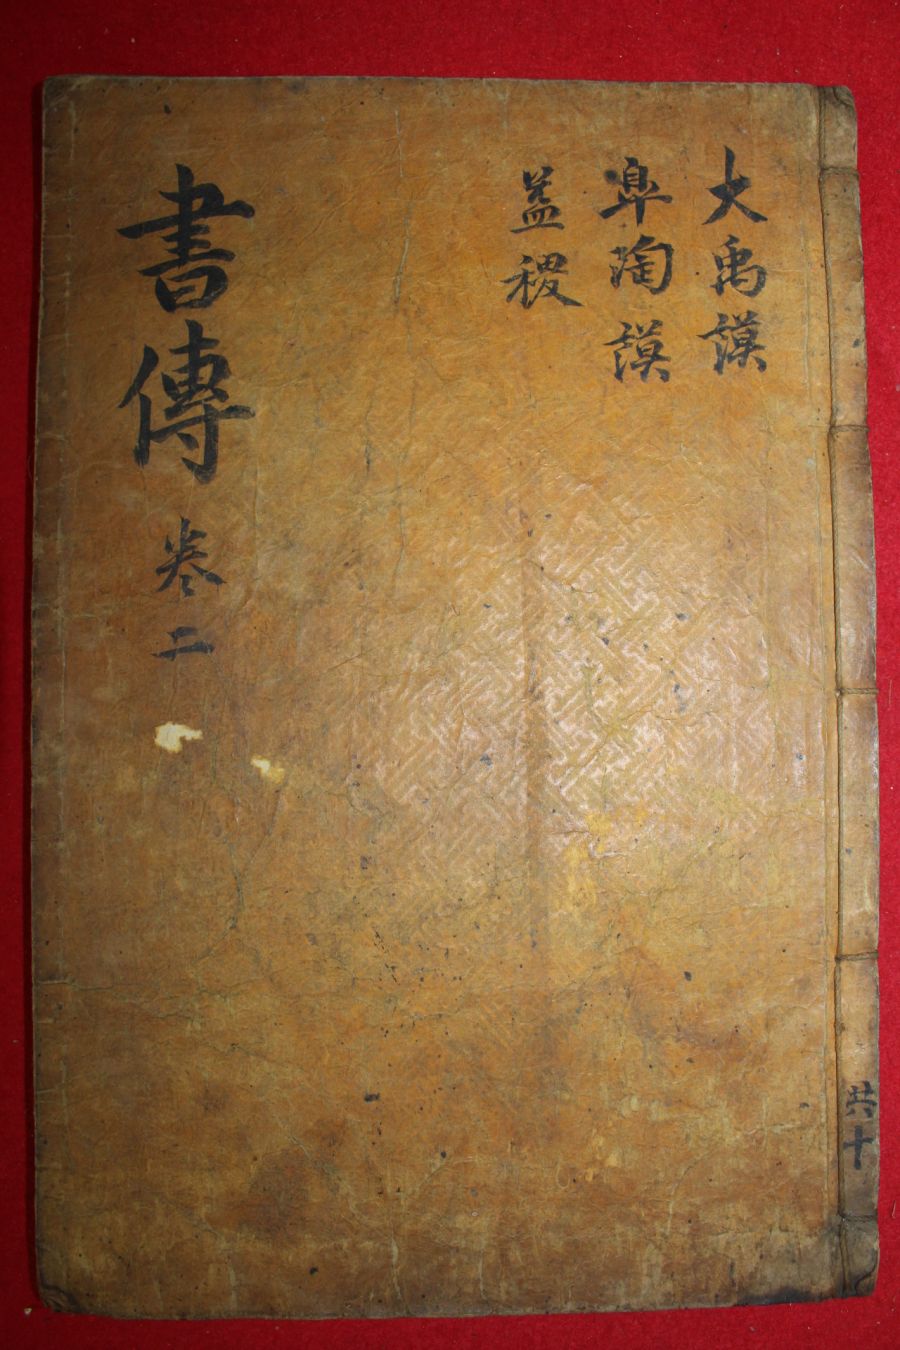 大禹謨
皐陶謨
益稷
書傳 卷二
共十